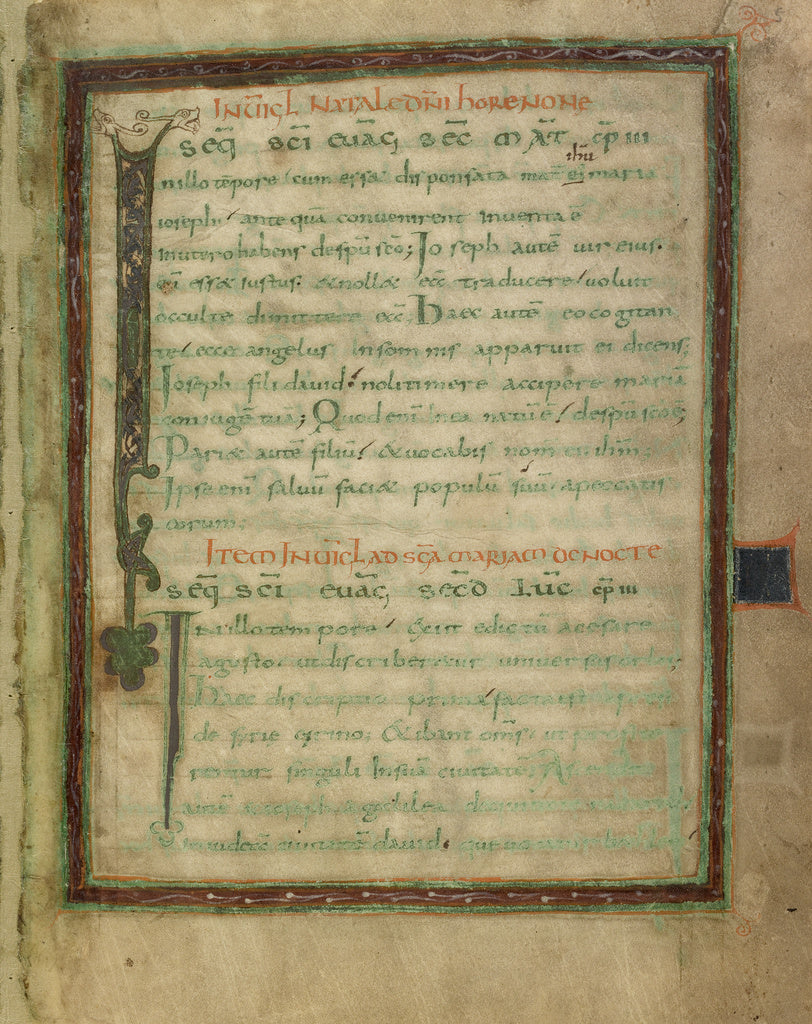 IN UIGL NATALE DNI hORE NONE
SEQ SCI EUAG SEC MAT CP III
ihu
nillo tēpore cum esset disponsata mat ei maria
ioseph ante quā convenirent inventa ē
inutero habens despū scō; Ioseph autē uir eius.
cū esset iustus. & nollet eā traducere uoluit
occulte dimittere eā. Haec autē eo cogitan
te. ecce angelus insomnis apparuit ei dicens;
Ioseph fili david. noli timere accipere mariā
coniugē tuā; Quod enī in ea natū ē despū scō ē;
Pariet autē filiū. & vocabis nom eius ihm;
Ipse enī salvū faciet populū suū apeccatis
eorum;
ITEM IN UIGL AD SCA MARIAM DE NOCTE
SEQ SCI EUAG SECD LUC CP III
In illo tempore Exiit edictū a cesare
agusto. ut discriberetur universus orbis;
Haec discriptio prima facta est
de syrie cirino; & ibant oms ut
terentur singuli insuā civitatē; Ascendit
autē & ioseph a galilea
in iudeā civitatē david.